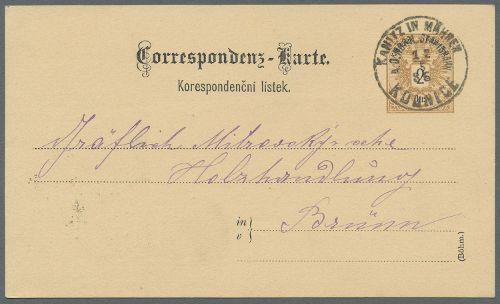 Correspondenz-Karte.
Korespondenční lístek.
KANITZ IN MÄHREN
KOUNICE
Gräflich Mitrovsky'sche
Holzhandlung
in
v
Brünn
(Böhm.)